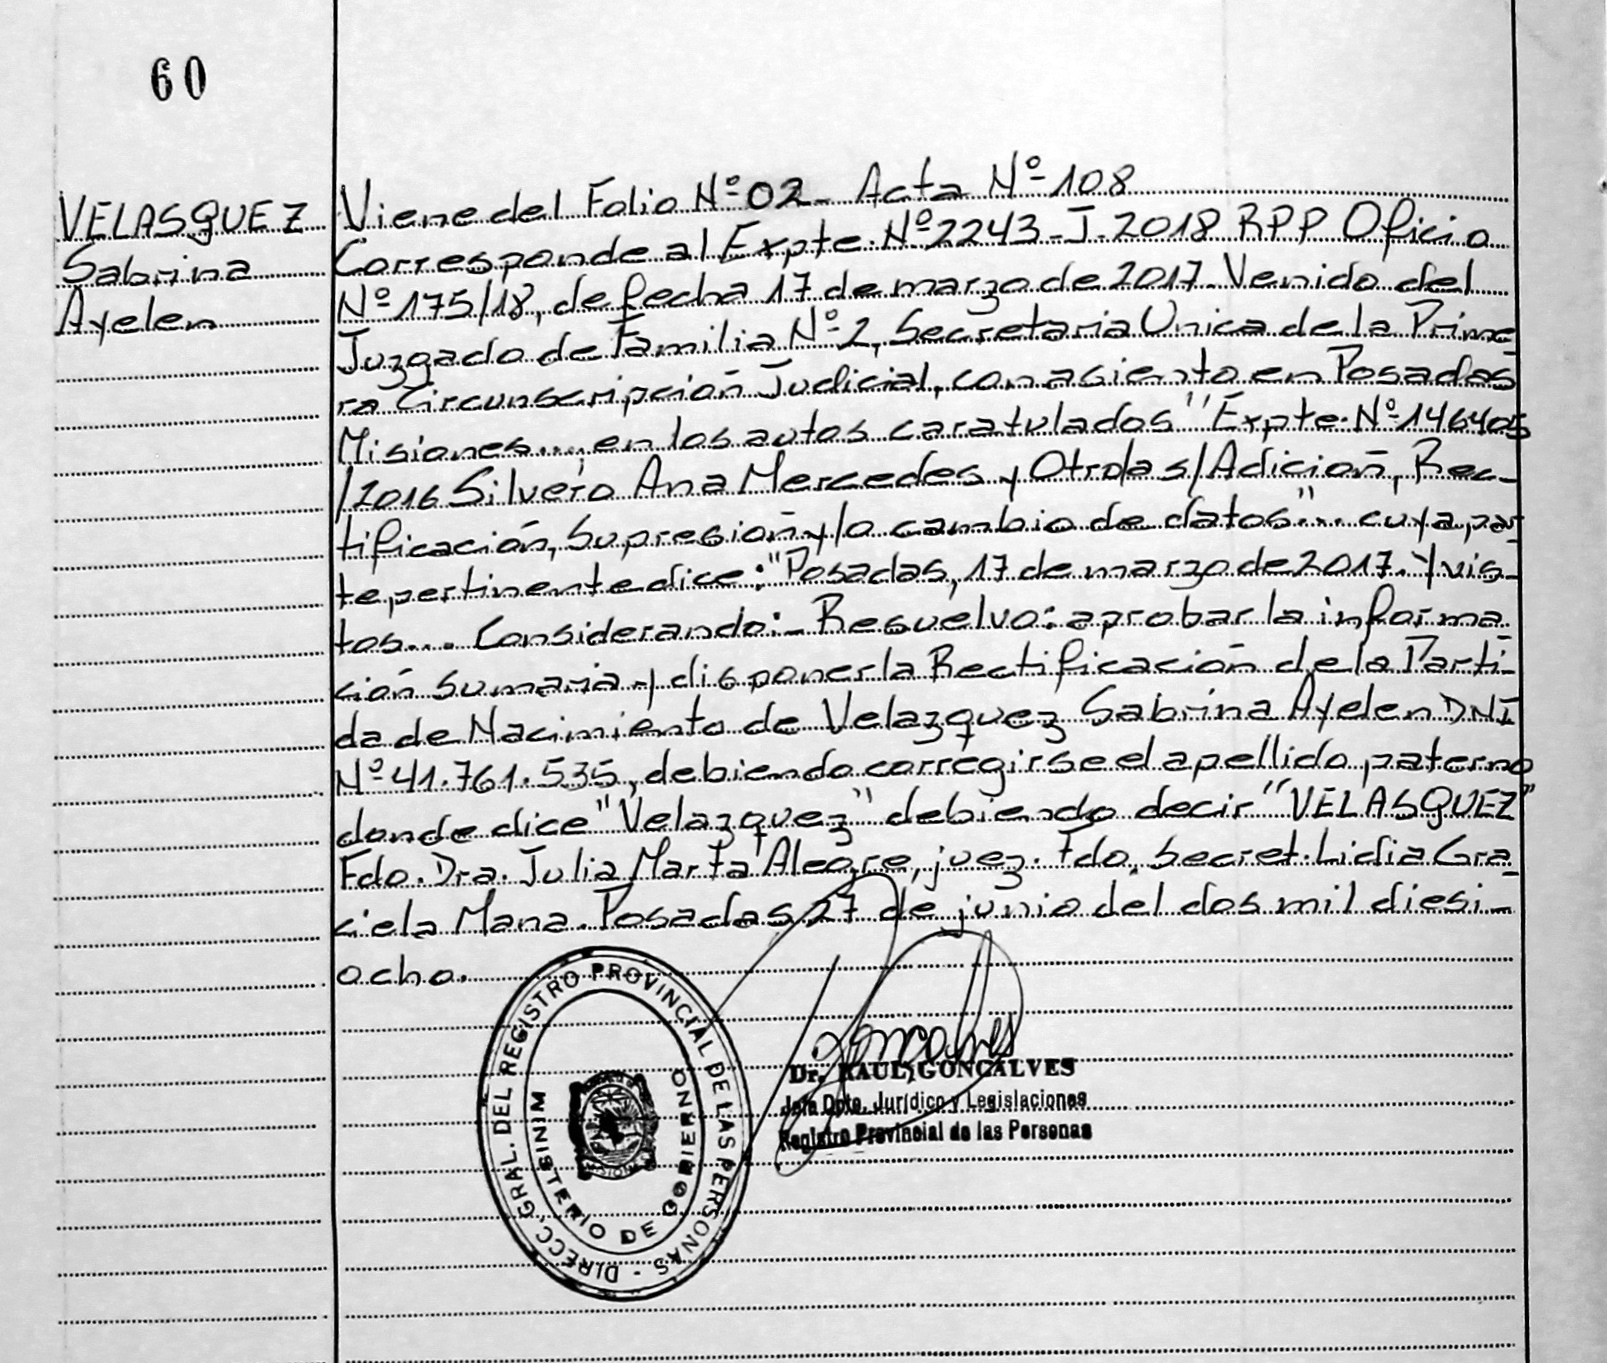 60
VELASQUEZ
Sabrina
Ayelen
Viene del Folio Nº 02- Acta Nº 108
Corresponde al Expte. Nº 2243-J-2018 RPP Oficio
Nº 175/18, de fecha 17 de marzo de 2017. Venido del
Juzgado de Familia Nº 2, Secretaria Unica de la Prime-
ra Circunscripción Judicial, con asiento en Posadas
Misiones.... en los autos caratulados "Expte. Nº 146405
/2016 Silvero Ana Mercedes y Otro/a s/Adición, Rec-
tificación, Supresión y/o cambio de datos"... cuya par-
te pertinente dice: "Posadas, 17 de marzo de 2017. Y vis-
tos... Considerando:- Resuelvo: aprobar la informa-
ción sumaria y disponer la Rectificación de la Parti-
da de Nacimiento de Velazquez Sabrina Ayelen DNI
Nº 41.761.535, debiendo corregirse el apellido paterno
donde dice "Velazquez" debiendo decir "VELASQUEZ"
Fdo. Dra. Julia Marta Alegre, juez. Fdo. Secret. Lidia Gra-
ciela Mana. Posadas 27 de junio del dos mil diesi-
ocho.
DIRECC. GRAL. DEL REGISTRO PROVINCIAL DE LAS PERSONAS -
MINISTERIO DE GOBIERNO
MISIONES
Goncalves
Dr. RAUL GONCALVES
Jefe Dpto. Jurídico y Legislaciones
Registro Provincial de las Personas